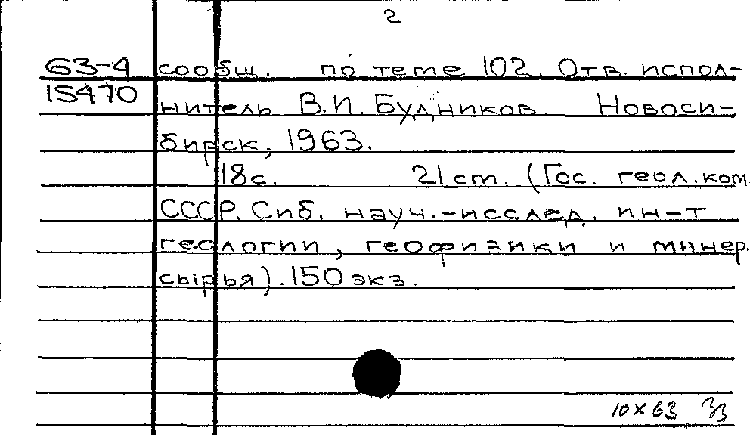 2
63-4 сообщ. по теме 102. Отв. испол-
15470 нитель В.И. Будников. Новоси-
бирск, 1963.
18с. 21см. (Гос. геол. ком.
СССР. Сиб. науч.-исслед. ин-т
геологии, геофизики и минер.
сырья). 150 экз.
10 X 63